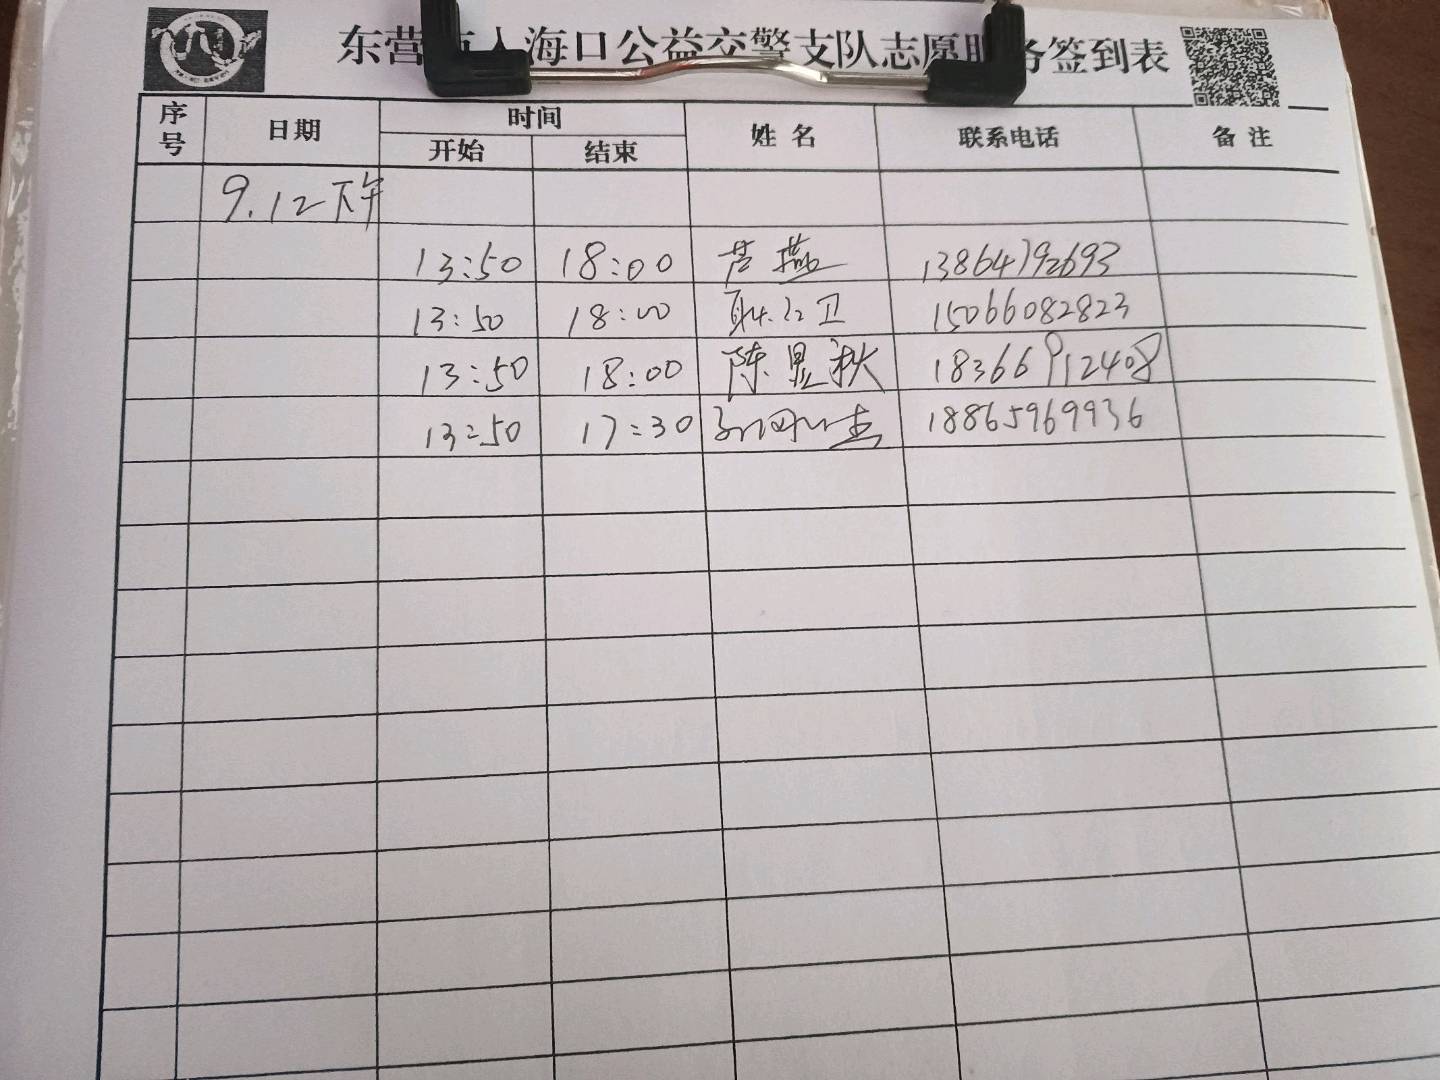 东营市入海口公益交警支队志愿服务签到表
序号 日期 时间 姓名 联系电话 备注
开始 结束
9.12下午
13:50 18:00 芦燕 13864792693
13:50 18:00 耿红卫 15066082823
13:50 18:00 陈昱秋 18366912408
13:50 17:30 18865969936